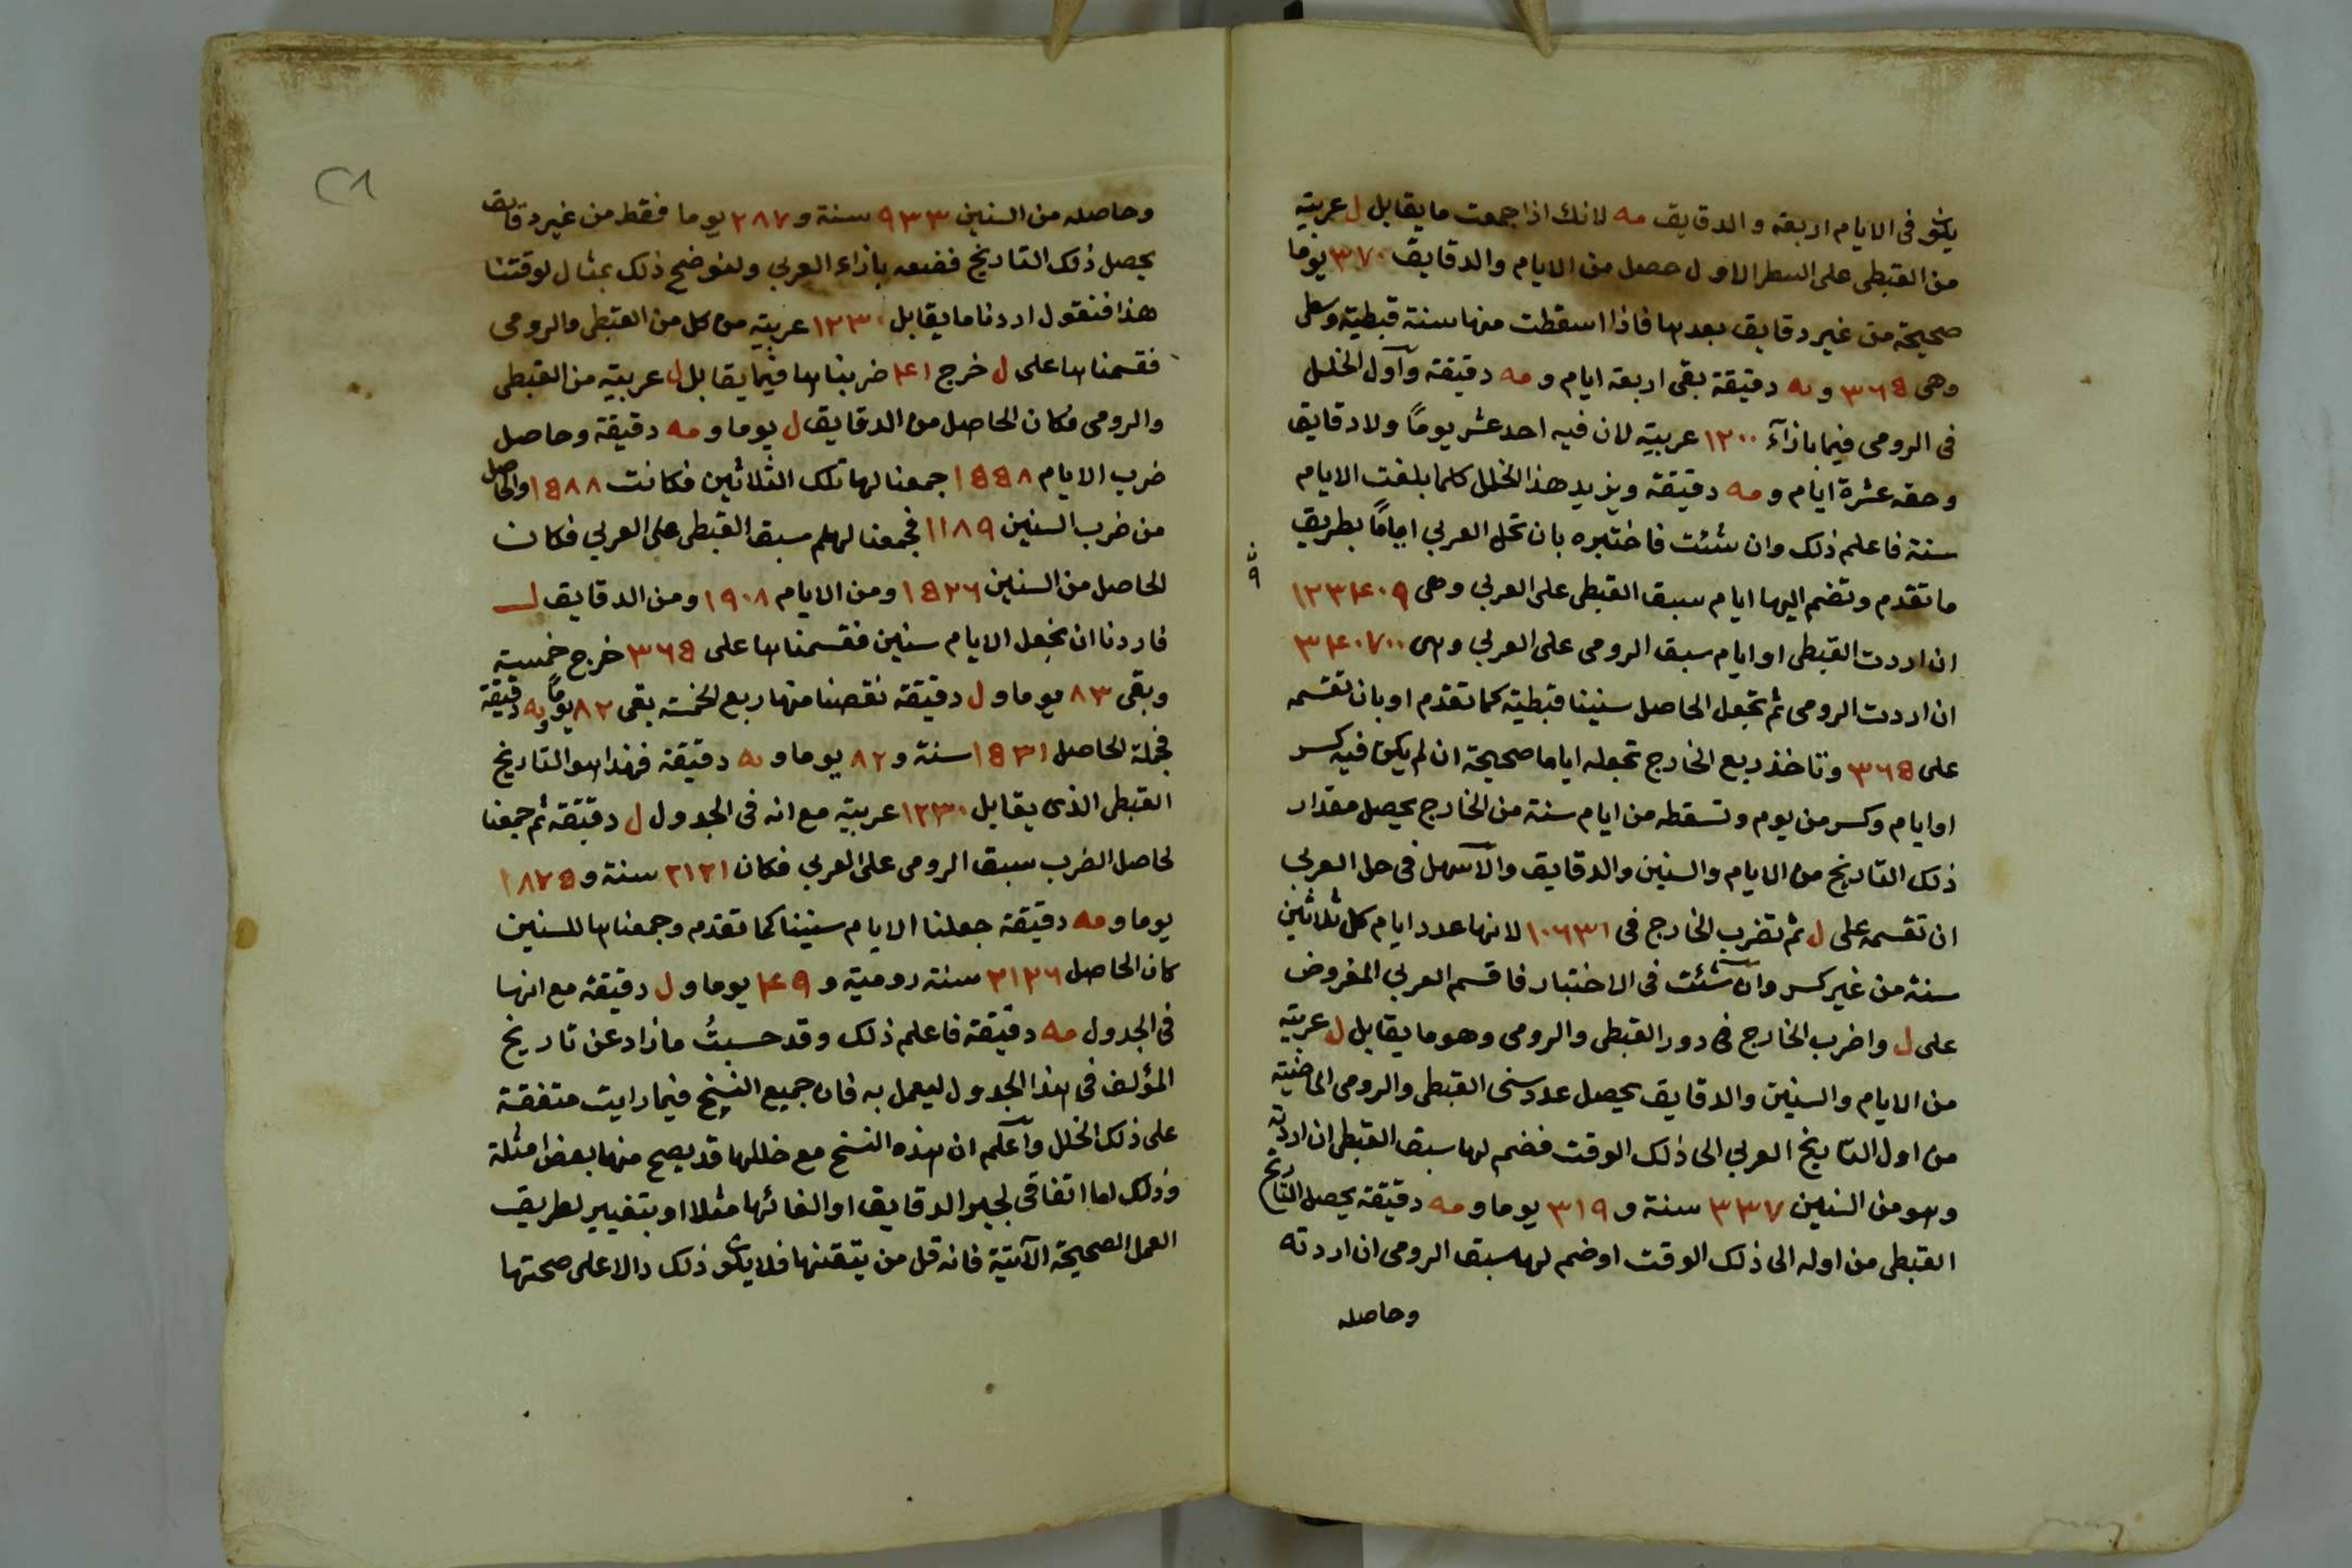 يكون فى الايام اربعة والدقايق مه لانك اذا جمعت ما يقابل ل عربية
من القبطى على السطر الاول حصل من الايام والدقايق ٣٧٠ يوما
صحيحة من غير دقايق بعدها فاذا اسقطت منها سنة قبطية وسطى
وهى ٣٦٥ و يه دقيقة بقى اربعة ايام و مه دقيقة وآول الخلل
فى الرومى فيما بازآء ١٢٠٠ عربية لان فيه احد عشر يومًا ولا دقايق
وحقه عشرة ايام و مه دقيقة ويزيد هذا الخلل كلما بلغت الايام
سنة فاعلم ذلك وان شئت فاختبره بان تحل العربي ايامًا بطريق
ما تقدم وتضم اليها ايام سبق القبطى على العربي وهى ١٢٣٤٠٩
ان اردت القبطى او ايام سبق الرومى على العربي وهى ٣٤٠٧٠٠
ان اردت الرومى ثم تجعل الحاصل سنينا قبطية كما تقدم او بان تقسمه
على ٣٦٥ وتاخذ ربع الخارج تجعله اياما صحيحة ان لم يكن فيه كسر
او ايام وكسر من يوم وتسقطه من ايام سنة من الخارج يحصل مقدار
ذلك التاريخ من الايام والسنين والدقايق والآسهل فى حل العربى
ان تقسمه على ل ثم تضرب الخارج فى ١٠٦٣١ لانها عدد ايام كل ثلاثين
سنة من غير كسر وان شئت فى الاختبار فاقسم العربي المفروض
على ل واضرب الخارج فى دور القبطى والرومى وهو ما يقابل ل عربية
من الايام والسنين والدقايق يحصل عدد سنى القبطى والرومى الماضية
من اول التاريخ العربي الى ذلك الوقت فضم لها سبق القبطى ان اردته
وهو من السنين ٣٣٧ سنة و ٣١٩ يوما و مه دقيقة يحصل التاريخ
القبطى من اوله الى ذلك الوقت او ضم لها سبق الرومى ان اردته
وحاصله
٢١
وحاصله من السنين ٩٣٣ سنة و ٢٨٧ يوما فقط من غير دقايق
يحصل ذلك التاريخ فضعه بازاء العربي ولنوضح ذلك بمثال لوقتنا
هذا فنقول اردنا ما يقابل ١٢٣٠ عربية من كل من القبطى والرومى
فقسمناها على ل خرج ٤١ ضربناها فيما يقابل ل عربية من القبطى
والرومى فكان الحاصل من الدقايق ل يوما و مه دقيقة وحاصل
ضرب الايام ١٥٥٨ جمعنا لها تلك الثلاثين فكانت ١٥٨٨ والحاصل
من ضرب السنين ١١٨٩ فجمعنا لهلم سبق القبطى على العربي فكان
الحاصل من السنين ١٥٢٦ ومن الايام ١٩٠٨ ومن الدقايق ل
فاردنا ان نجعل الايام سنين فقسمناها على ٣٦٥ خرج خمسة
وبقى ٨٣ يوما و ل دقيقة نقصنا منها ربع الخمسة بقى ٨٢ يومًا و يه دقيقة
فجملة الحاصل ١٥٣١ سنة و ٨٢ يوما و يه دقيقة فهذا هو التاريخ
القبطى الذى يقابل ١٢٣٠ عربية مع انه فى الجدول ل دقيقة ثم جمعنا
لحاصل الضرب سبق الرومى على العربي فكان ٢١٢١ سنة و ١٨٧٥
يوما و مه دقيقة جعلنا الايام سنينا كما تقدم وجمعناها للسنين
كان الحاصل ٢١٢٦ سنة رومية و ٤٩ يوما و ل دقيقة مع انها
فى الجدول مه دقيقة فاعلم ذلك وقد حسبتُ ما زاد عن تاريخ
المؤلف فى هذا الجدول ليعمل به فان جميع النسخ فيما رايت متفقة
على ذلك الخلل وآعلم ان هذه النسخ مع خللها قد يصح منها بعض امثلة
وذلك اما اتفاقى لجبر الدقايق او الغائها مثلا او بتغيير لطريق
العمل الصحيحة الآتية فانه قل من يتقنها فلا يكون ذلك دالا على صحتها